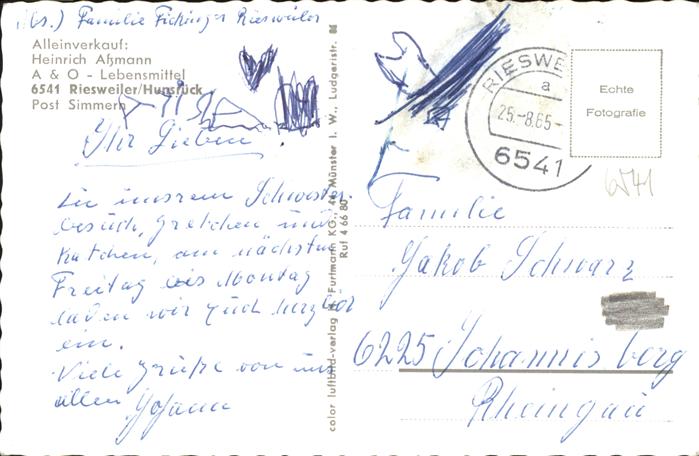 (Abs.) Familie Fickinger Riesweiler
Alleinverkauf:
Heinrich Aßmann
A & O - Lebensmittel
6541 Riesweiler/Hunsrück
Post Simmern
Ihr Lieben
Zu unserem Schwestern-
besuch, Gretchen, und
Kätchen, am nächsten
Freitag bis Montag
laden wir Euch herzlich
ein.
Viele Grüße von uns
allen Johann
color luftbild-verlag Furtmann KG., 44 Münster i. W., Ludgeristr. 86
Ruf 4 66 80
RIESWE
a
25.-8.65-
6541
Echte
Fotografie
6541
Familie
Jakob Schwarz
6225 Johannisberg
Rheingau